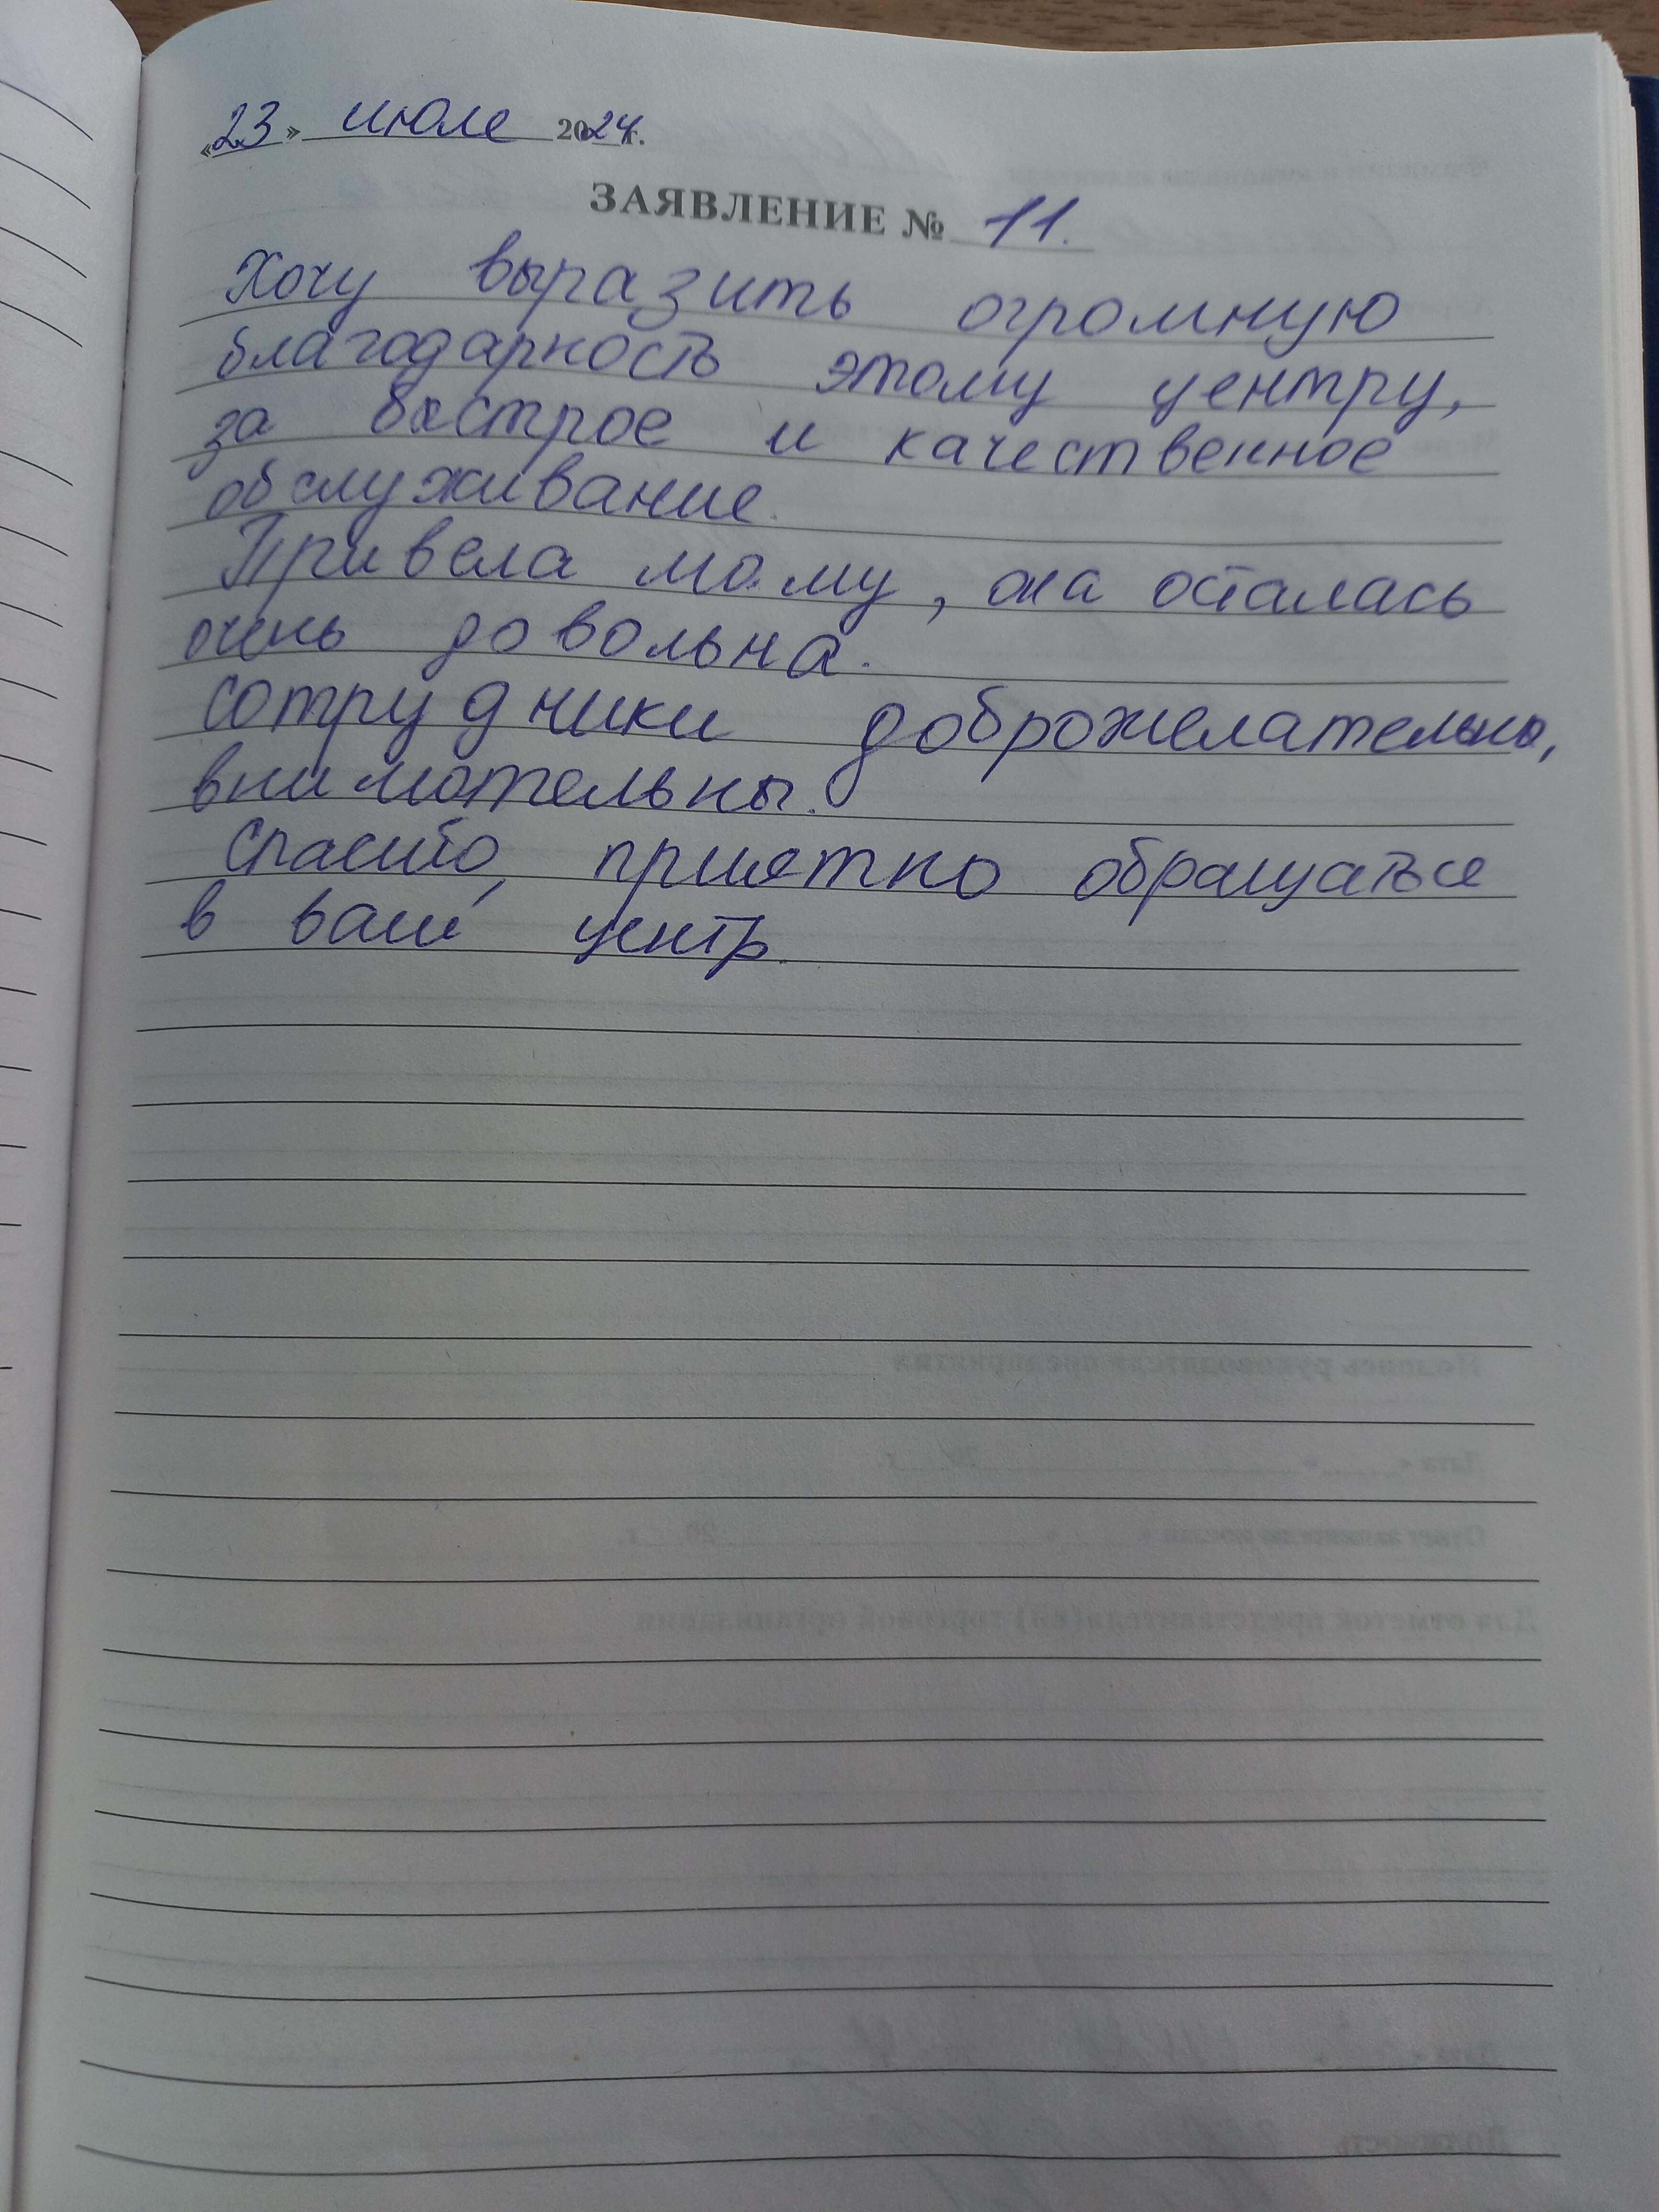 «23» июля 2024г.
ЗАЯВЛЕНИЕ № 11.
Хочу выразить огромную
благодарность этому центру,
за быстрое и качественное
обслуживание.
Привела маму, она осталась
очень довольна.
Сотрудники доброжелательны,
внимательны.
Спасибо, приятно обращаться
в ваш центр.